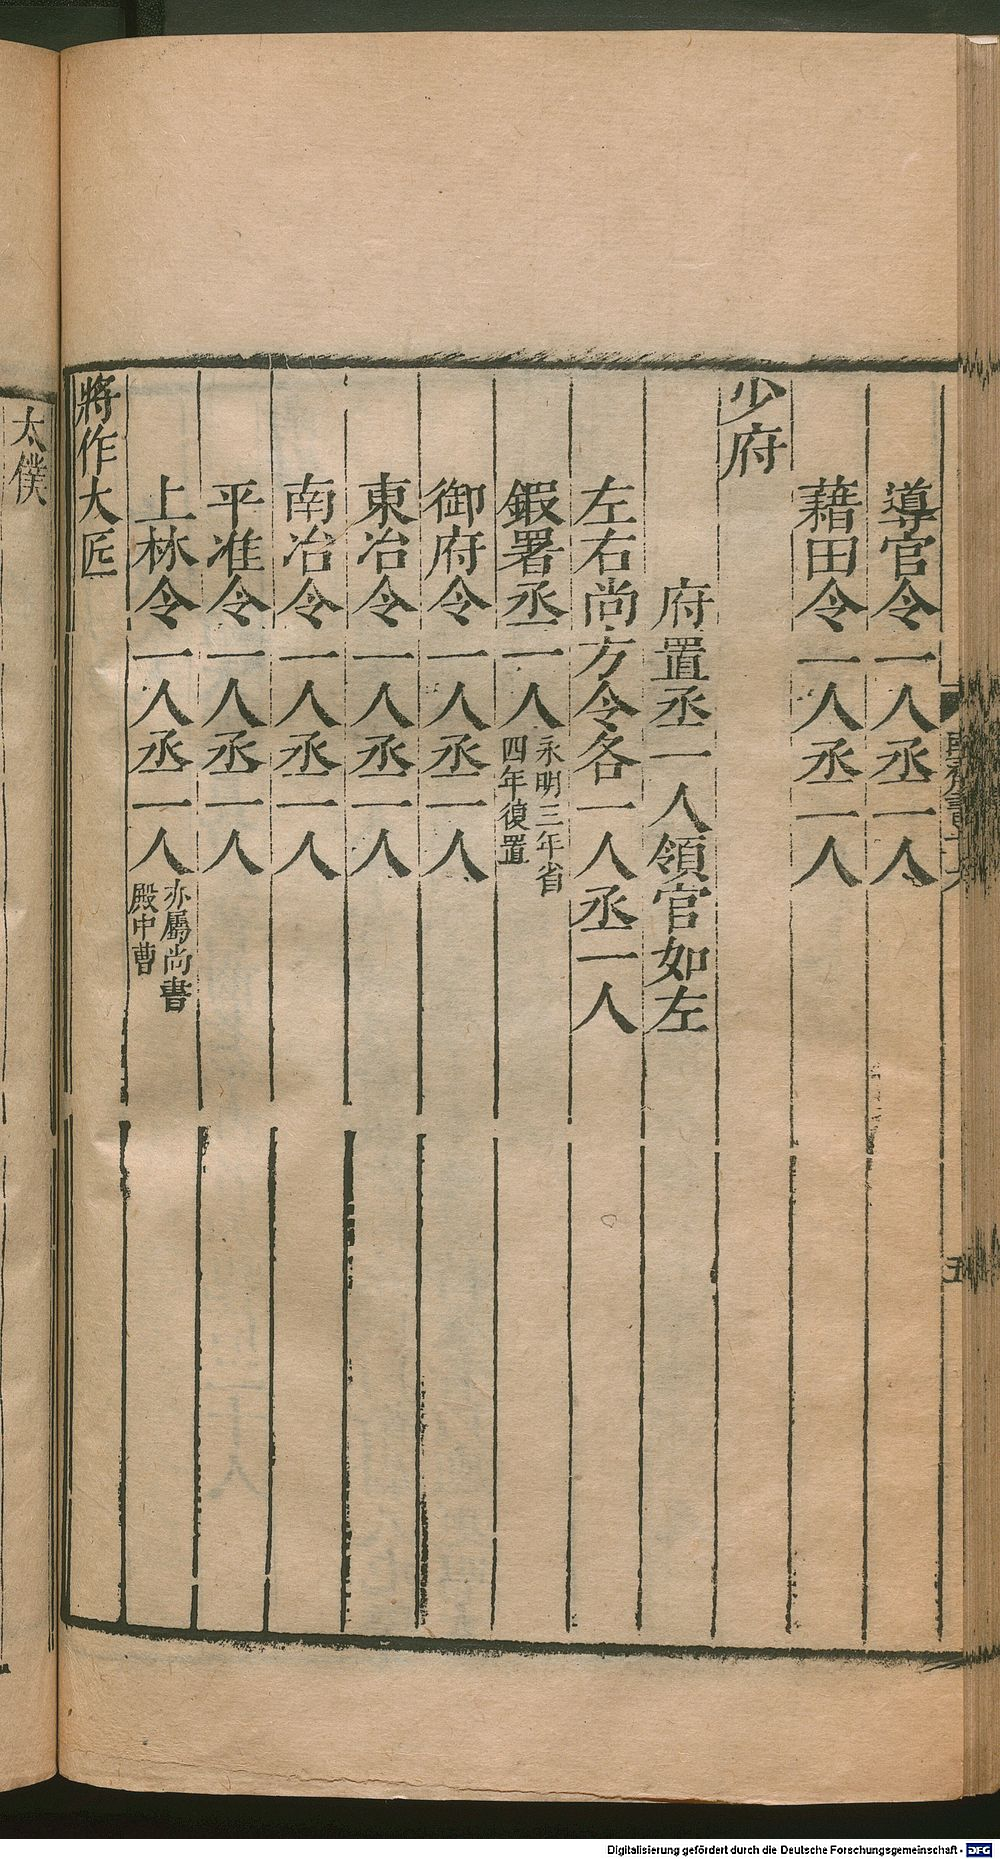 導官令一人丞一人
藉田令一人丞一人
少府
府置丞一人領官如左
左右尚方令各一人丞一人
鍜署丞一人永明三年省
四年復置
御府令一人丞一人
東冶令一人丞一人
南冶令一人丞一人
平准令一人丞一人
上林令一人丞一人亦屬尚書
殿中曹
將作大匠
太僕
五
Digitalisierung gefördert durch die Deutsche Forschungsgemeinschaft - DFG